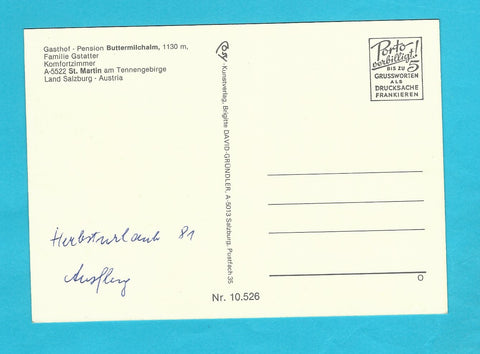 Gasthof - Pension Buttermilchalm, 1130 m,
Familie Gstatter
Komfortzimmer
A-5522 St. Martin am Tennengebirge
Land Salzburg - Austria
Herbsturlaub 81
Ausflug
Kunstverlag, Brigitte DAVID-GRÜNDLER, A-5013 Salzburg, Postfach 35
Nr. 10.526
Porto
verbilligt!
BIS ZU 5
GRUSSWORTEN
ALS
DRUCKSACHE
FRANKIEREN